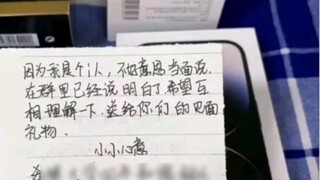 因为我是个i人，不好意思当面说，
在群里已经说明白了希望互
相理解一下，送给你们的见面
礼物.
小小心意